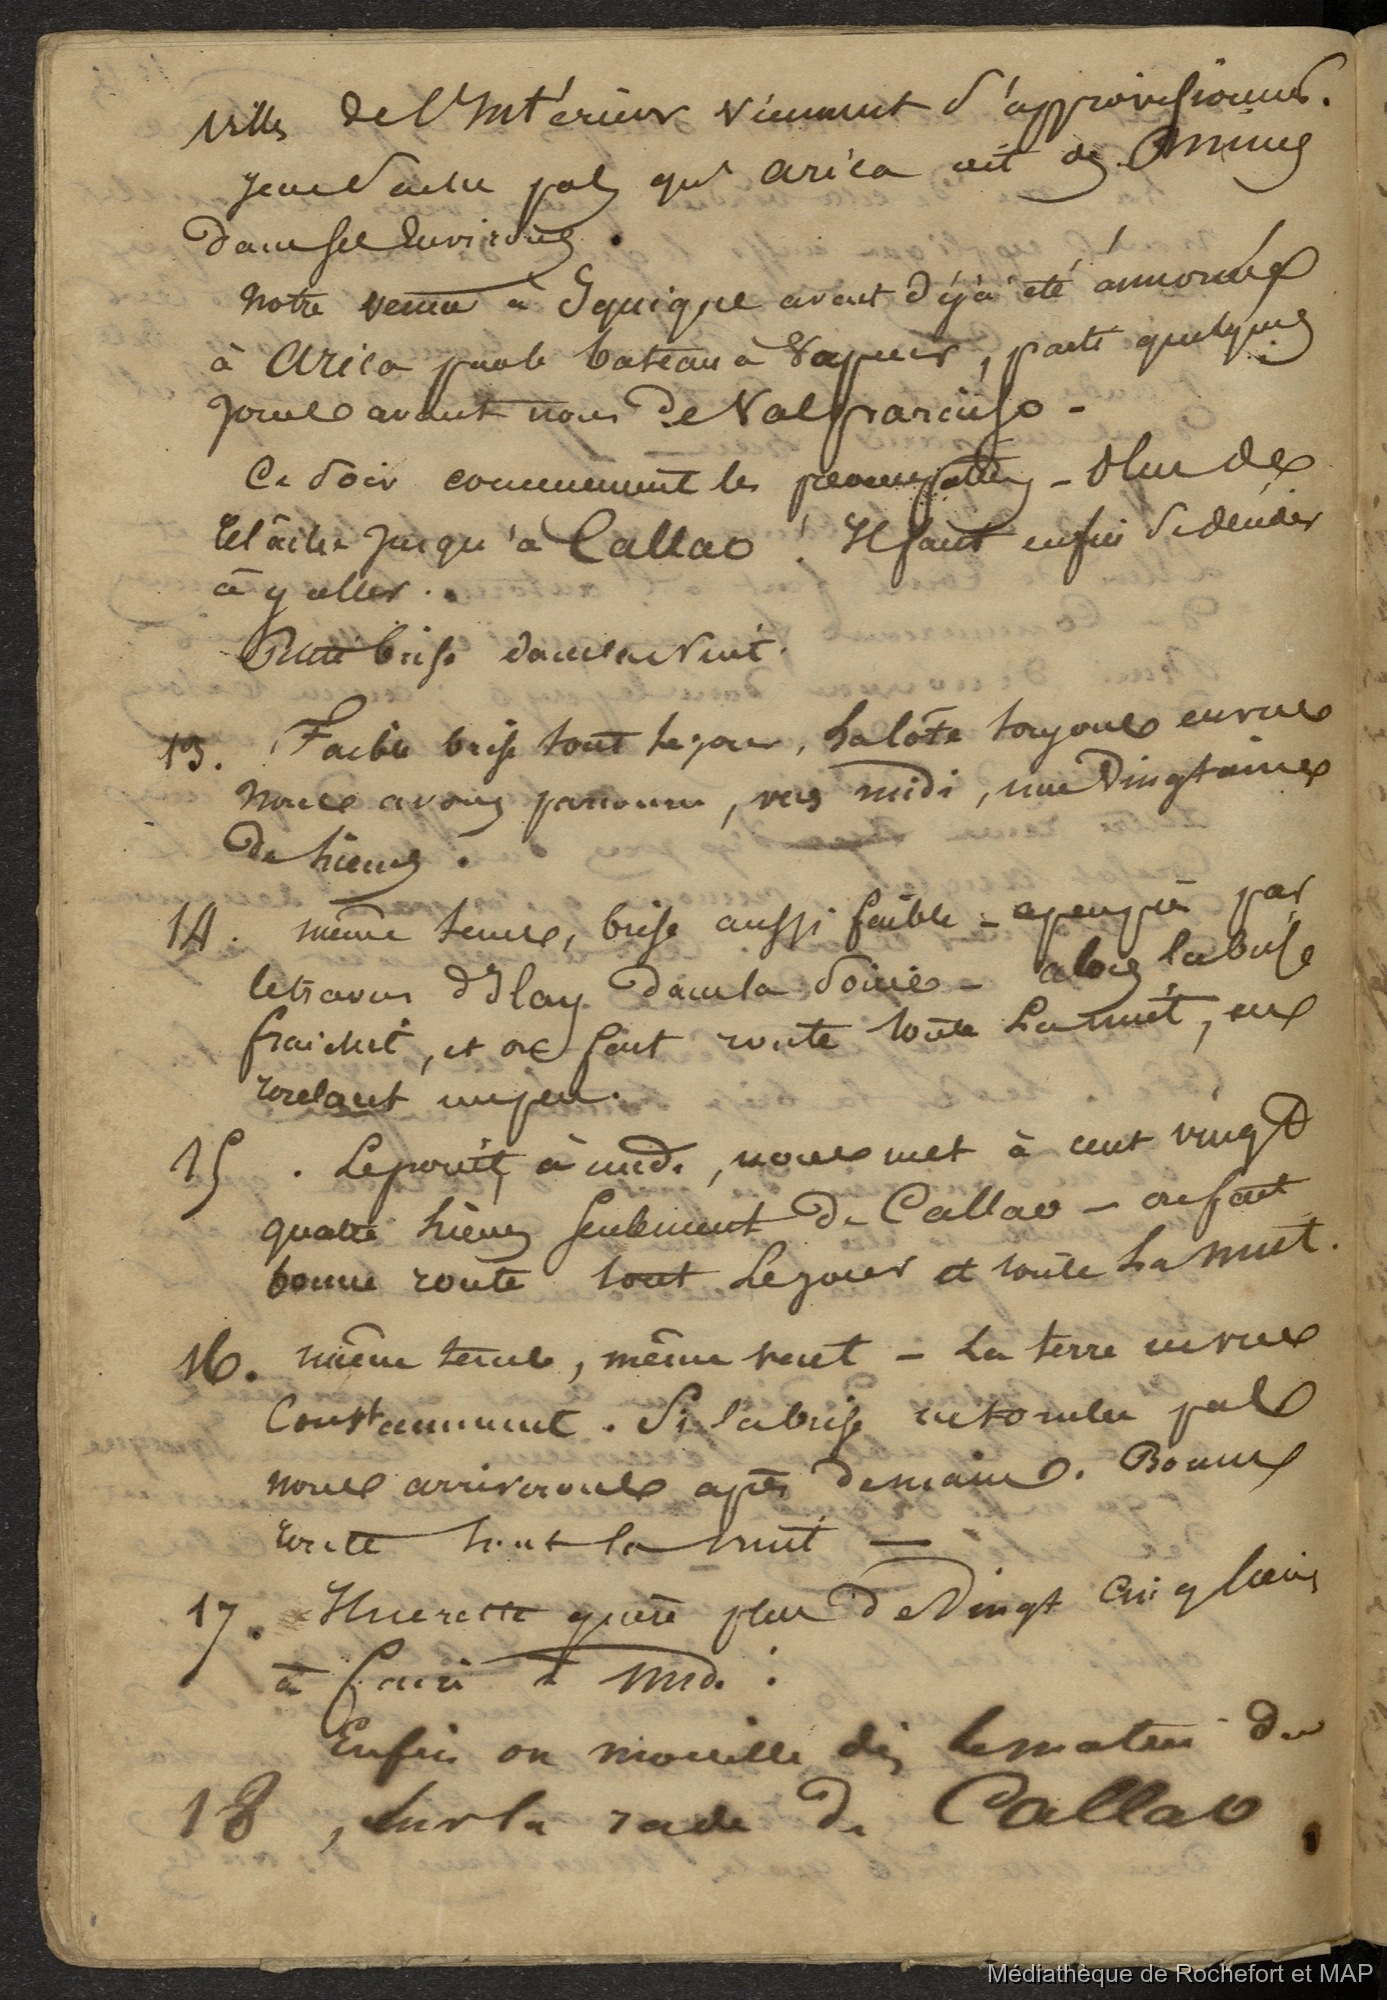 villes de l'Intérieur viennent s'approvisionner.
Je ne sache pas qu' Arica ait des mines
dans ses Environs.
Notre venue à Iquique avait déjà été annoncée
à Arica par le bateau à vapeur, parti quelques
jours avant nous de Valparaiso -
Ce soir commencent les - Plus de
relâche jusqu'à Callao ! Il faut enfin se décider
à y aller..
Petite brise dans la nuit.
13. Faible brise tout le jour, la côte toujours en vue
Nous avons parcouru, vers midi, une vingtaine
de lieues.
14. même temps, brise aussi faible - à peu près par
le travers d'Ilay dans la soirée - alors la brise
fraichit, et on fait route toute la nuit, en
roulant un peu.
15. Le point, à midi, nous met à cent vingt
quatre lieues seulement de Callao - on fait
bonne route tout le jour et toute la nuit.
16. même temps, même vent - La terre en vue
Constamment. Si la brise ne tombe pas
nous arriverons après demain. Bonne
route tout la nuit -
17. Il ne reste guère plus de vingt cinq lieues
à faire à midi.
Enfin on mouille dès le matin du
18, sur la rade de Callao.
Médiathèque de Rochefort et MAP